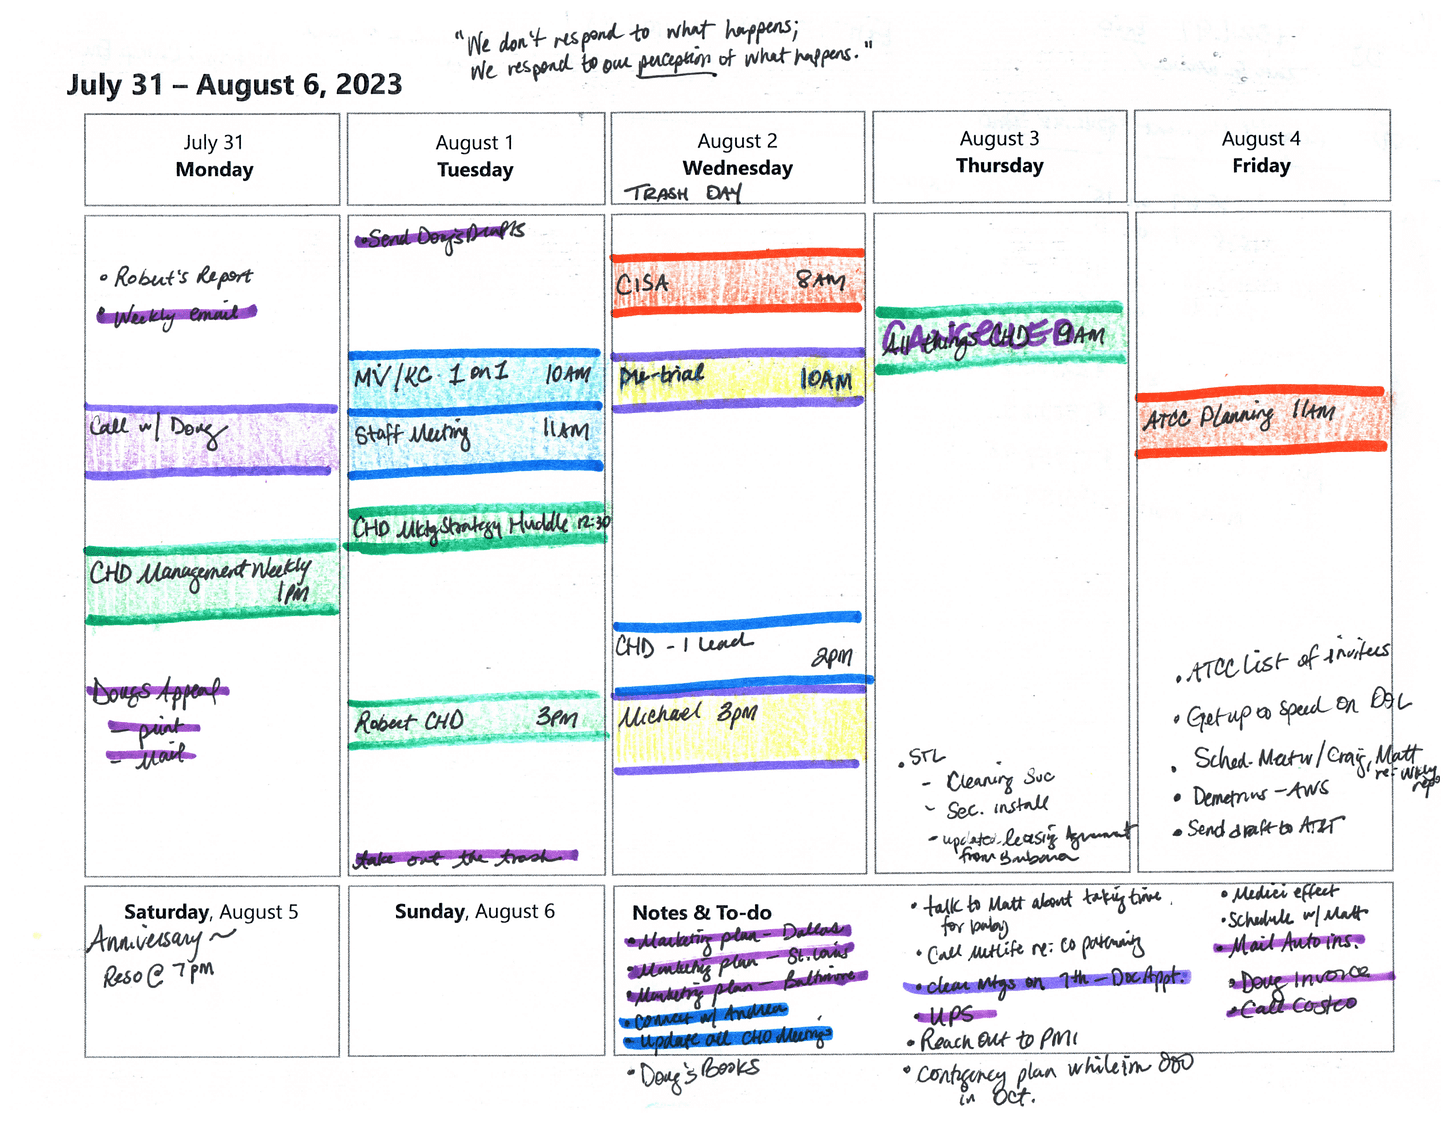 "We don't respond to what happens;
We respond to our perception of what happens."
July 31 – August 6, 2023
July 31
Monday
August 1
Tuesday
August 2
Wednesday
TRASH DAY
August 3
Thursday
August 4
Friday
• Robert's Report
• Weekly email
Call w/ Doug
CHD Management Weekly
1PM
Doug's Appeal
- print
- Mail
• Send Doug's Drafts
MV/KC 1 on 1 10AM
Staff Meeting 11AM
CHD Mktg Strategy Huddle 12:30
Robert CHD 3PM
take out the trash
CISA 8AM
Pre-trial 10AM
CHD - 1 Lead
2PM
Michael 3pm
CANCELLED
All things CHD 9AM
• STL
- Cleaning Svc
- Sec. install
- updated leasing Agreement
from Barbara
ATCC Planning 11AM
• ATCC List of invitees
• Get up to speed on
• Sched. Meet w/ Craig, Matt
re: wkly
repo
• Demetrius - AWS
• Send draft to AT&T
Saturday, August 5
Anniversary ~
Reso @ 7pm
Sunday, August 6
Notes & To-do
• Marketing plan - Dallas
• Marketing plan - St. Louis
• Marketing plan - Baltimore
• Connect w/ Andrea
• Update all CHD Meetings
• Doug's Books
• talk to Matt about taking time
for baby
• Call Metlife re: co paternity
• clear mtgs on 9th - Doc Appt.
• UPS
• Reach Out to PMI
• Contigency plan while im OOO
in Oct.
• Medici effect
• Schedule w/ Matt
• Mail Auto ins.
• Doug Invoice
• Call Costco